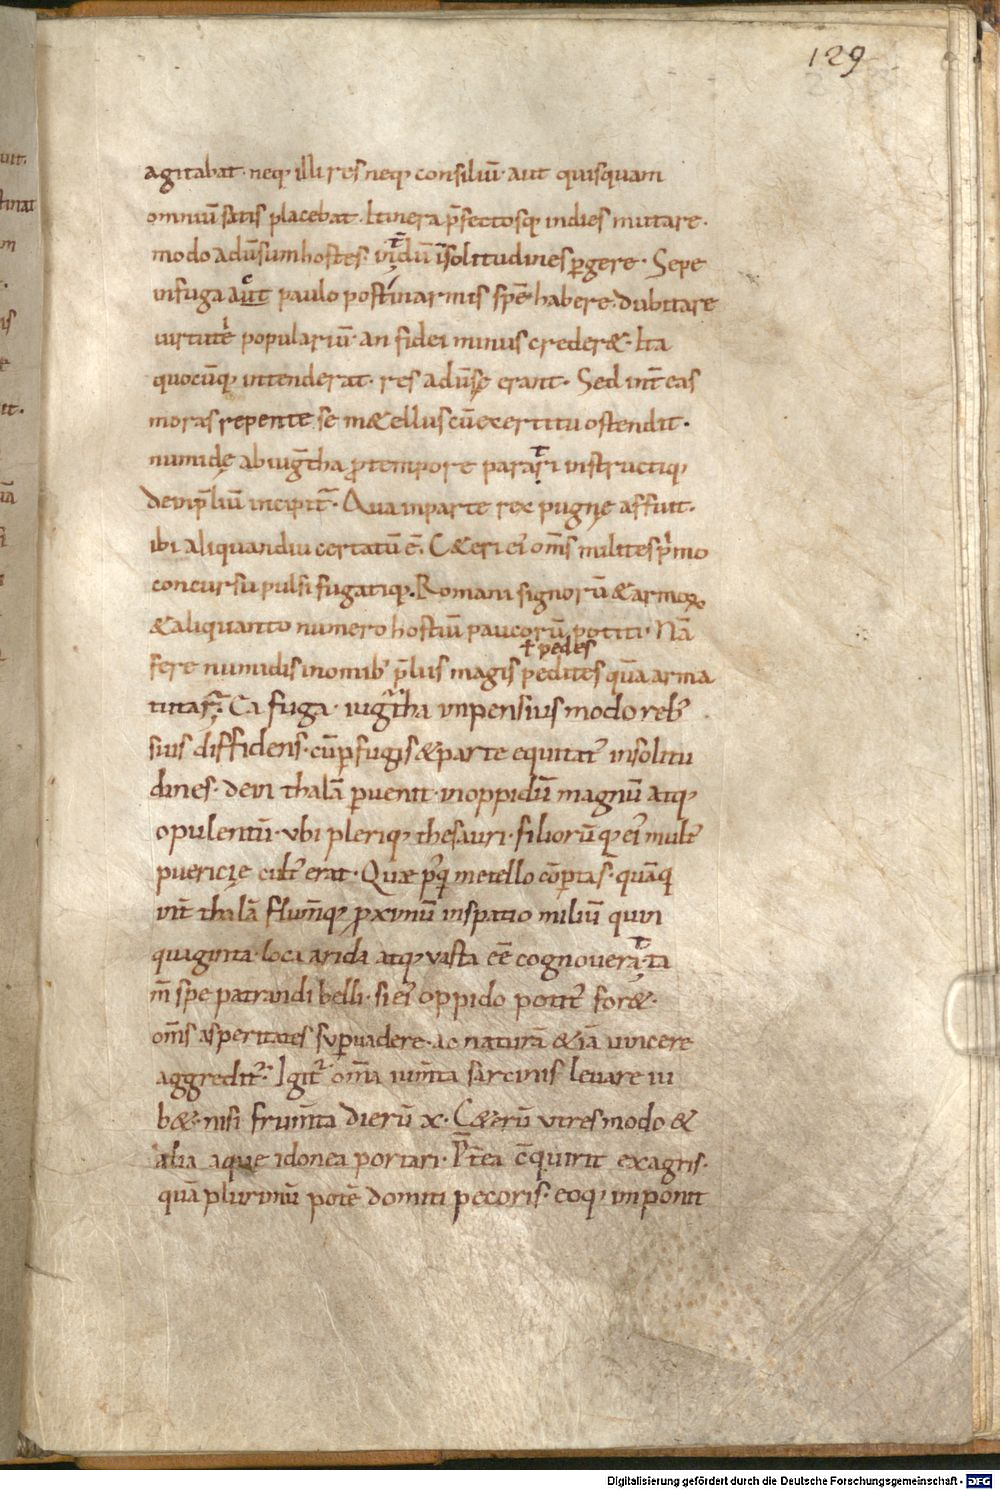 129
agitabat· neq; illi res neq; consiliū· aut quisquam
omniū satis placebat· Itinera p̄fectosq; indies mutare·
modo aduersum hostes· int̄dū insolitudines ꝑgere· Sepe
infuga aut paulo post inarmis spē habere· dubitare
uirtuti populariū· an fidei minus creder&· Ita
quocūq; intenderat· res aduersę erant· Sed int̄ eas
moras repente se m&ellus cū exercitu ostendit·
numidę abiugurtha ꝓtempore parati instructiq;
dein p̄liū incipit̄· Qua inparte rex pugnę affuit·
ibi aliquandiu certatū ē· C&eri ei' om̄s milites p̄mo
concursu pulsi fugatiq;· Romani signorū & armoꝝ
& aliquanto numero hostiū paucorū potiti· Nā
ł pedes
fere numidis inomnib; p̄lus magis pedites quā arma
tuta s̄t· Ea fuga· iugurtha inpensius modo reb;
suis diffidens· cū ꝑfugis & parte equitat' insolitu
dines· dein thalā ꝑuenit· inoppidū magnū atq;
opulentū· ubi pleriq; thesauri· filiorūq; ei' mult'
puericię cult' erat· Quæ p' q̄ metello cōꝑta s̄t· quāq̄
int̄ thalā flum̄q; ꝓximū inspatio miliū quin
quaginta· loca arida atq; uasta ēē cognouerat· ta
m̄ spe patrandi belli· si ei' oppido potit' for&·
om̄s asperitates suꝑuadere· ac naturā &iā uincere
aggredit̄· Igit̄ om̄a ium̄ta sarcinis leuare iu
b&· nisi frum̄ta dierū x· C&erū utres modo &
alia aque idonea portari· P̄t̄ea c̄quirit exagris·
quā plurimū potē domiti pecoris· eoq; inponit
Digitalisierung gefördert durch die Deutsche Forschungsgemeinschaft - DFG